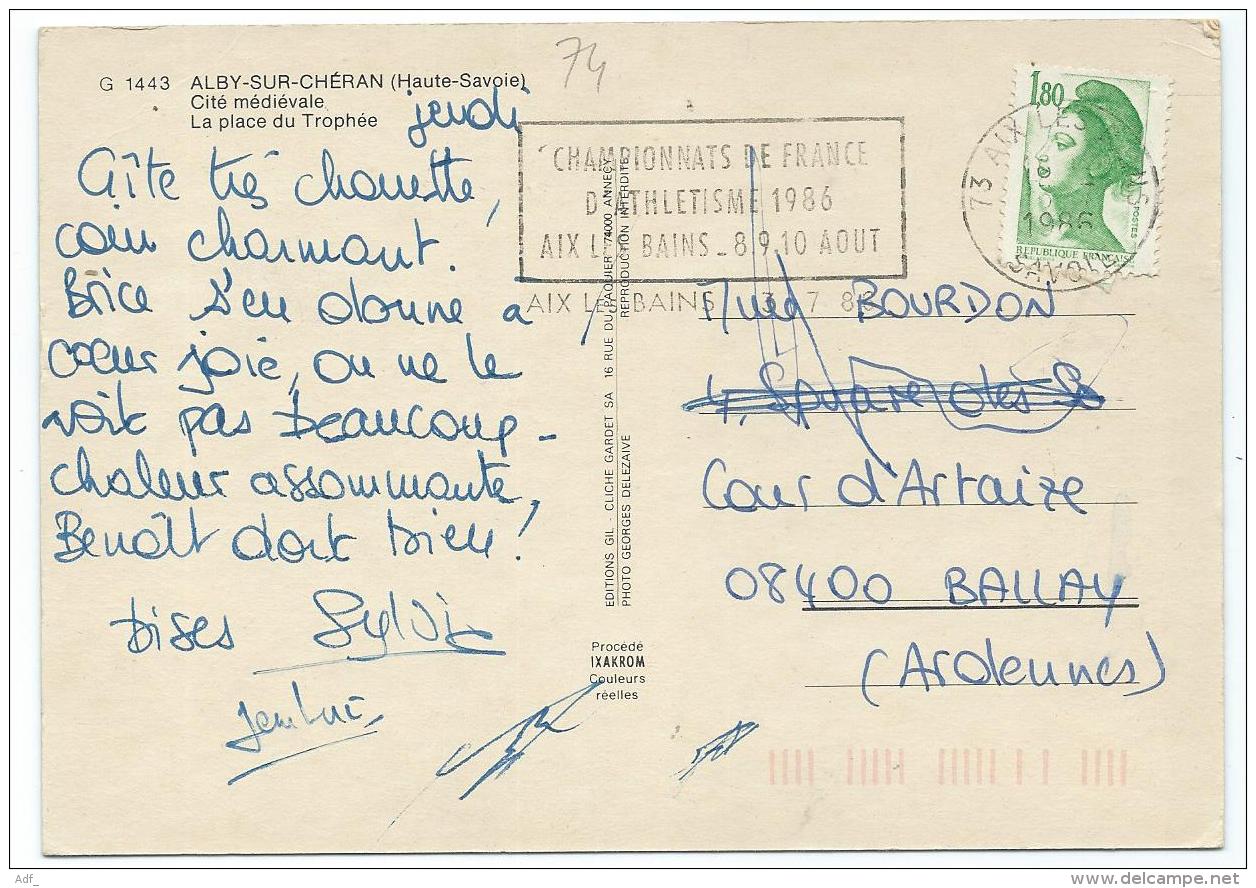 74
G 1443 ALBY-SUR-CHÉRAN (Haute-Savoie)
Cité médiévale
La place du Trophée
jeudi
Gîte très chouette,
coin charmant.
Brice s'en donne a
cœur joie, on ne le
voit pas beaucoup -
chaleur assommante,
Benoît dort bien!
Bises Sylvie
Jean Luc
CHAMPIONNATS DE FRANCE
D'ATHLETISME 1986
AIX LES BAINS - 8.9.10 AOUT
AIX LES BAINS 3 7 86
1,80
POSTES
REPUBLIQUE FRANÇAISE
73 AIX LES BAINS
1986
SAVOIE
EDITIONS GIL - CLICHE GARDET SA 16 RUE DU PAQUIER 74000 ANNECY
PHOTO GEORGES DELEZAIVE REPRODUCTION INTERDITE
Procédé
IXAKROM
Couleurs
réelles
BOURDON
4, Square des
Cour d'Artaize
08400 BALLAY
(Ardennes)
Adf_
delcampe.net